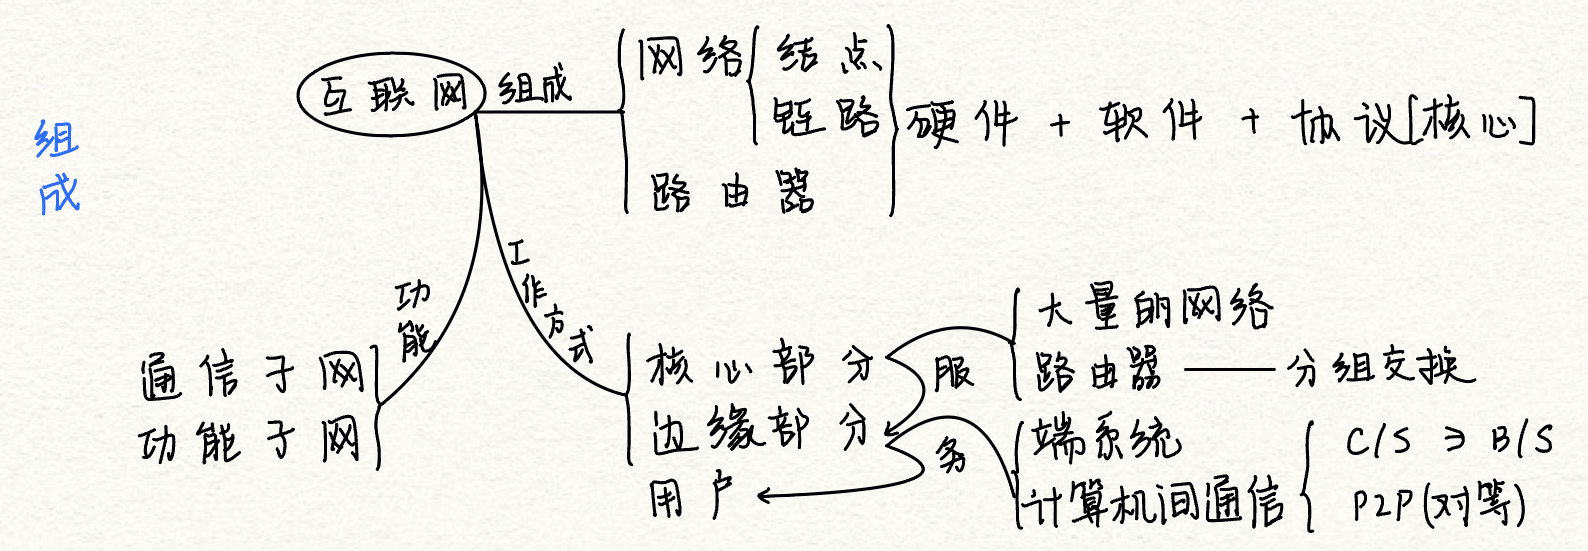 组成
互联网
组成
网络
结点
链路
路由器
硬件 + 软件 + 协议[核心]
功能
通信子网
功能子网
工作方式
核心部分
边缘部分
用户
服务
大量的网络
路由器 —— 分组交换
端系统
计算机间通信
C/S ⊇ B/S
P2P(对等)